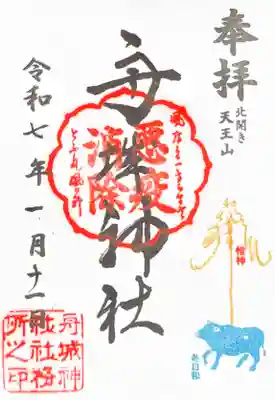 奉拝
北開き
天王山
舟城神社
悪疫
消除
令和七年一月十一日
舟城神
社社務
所之印